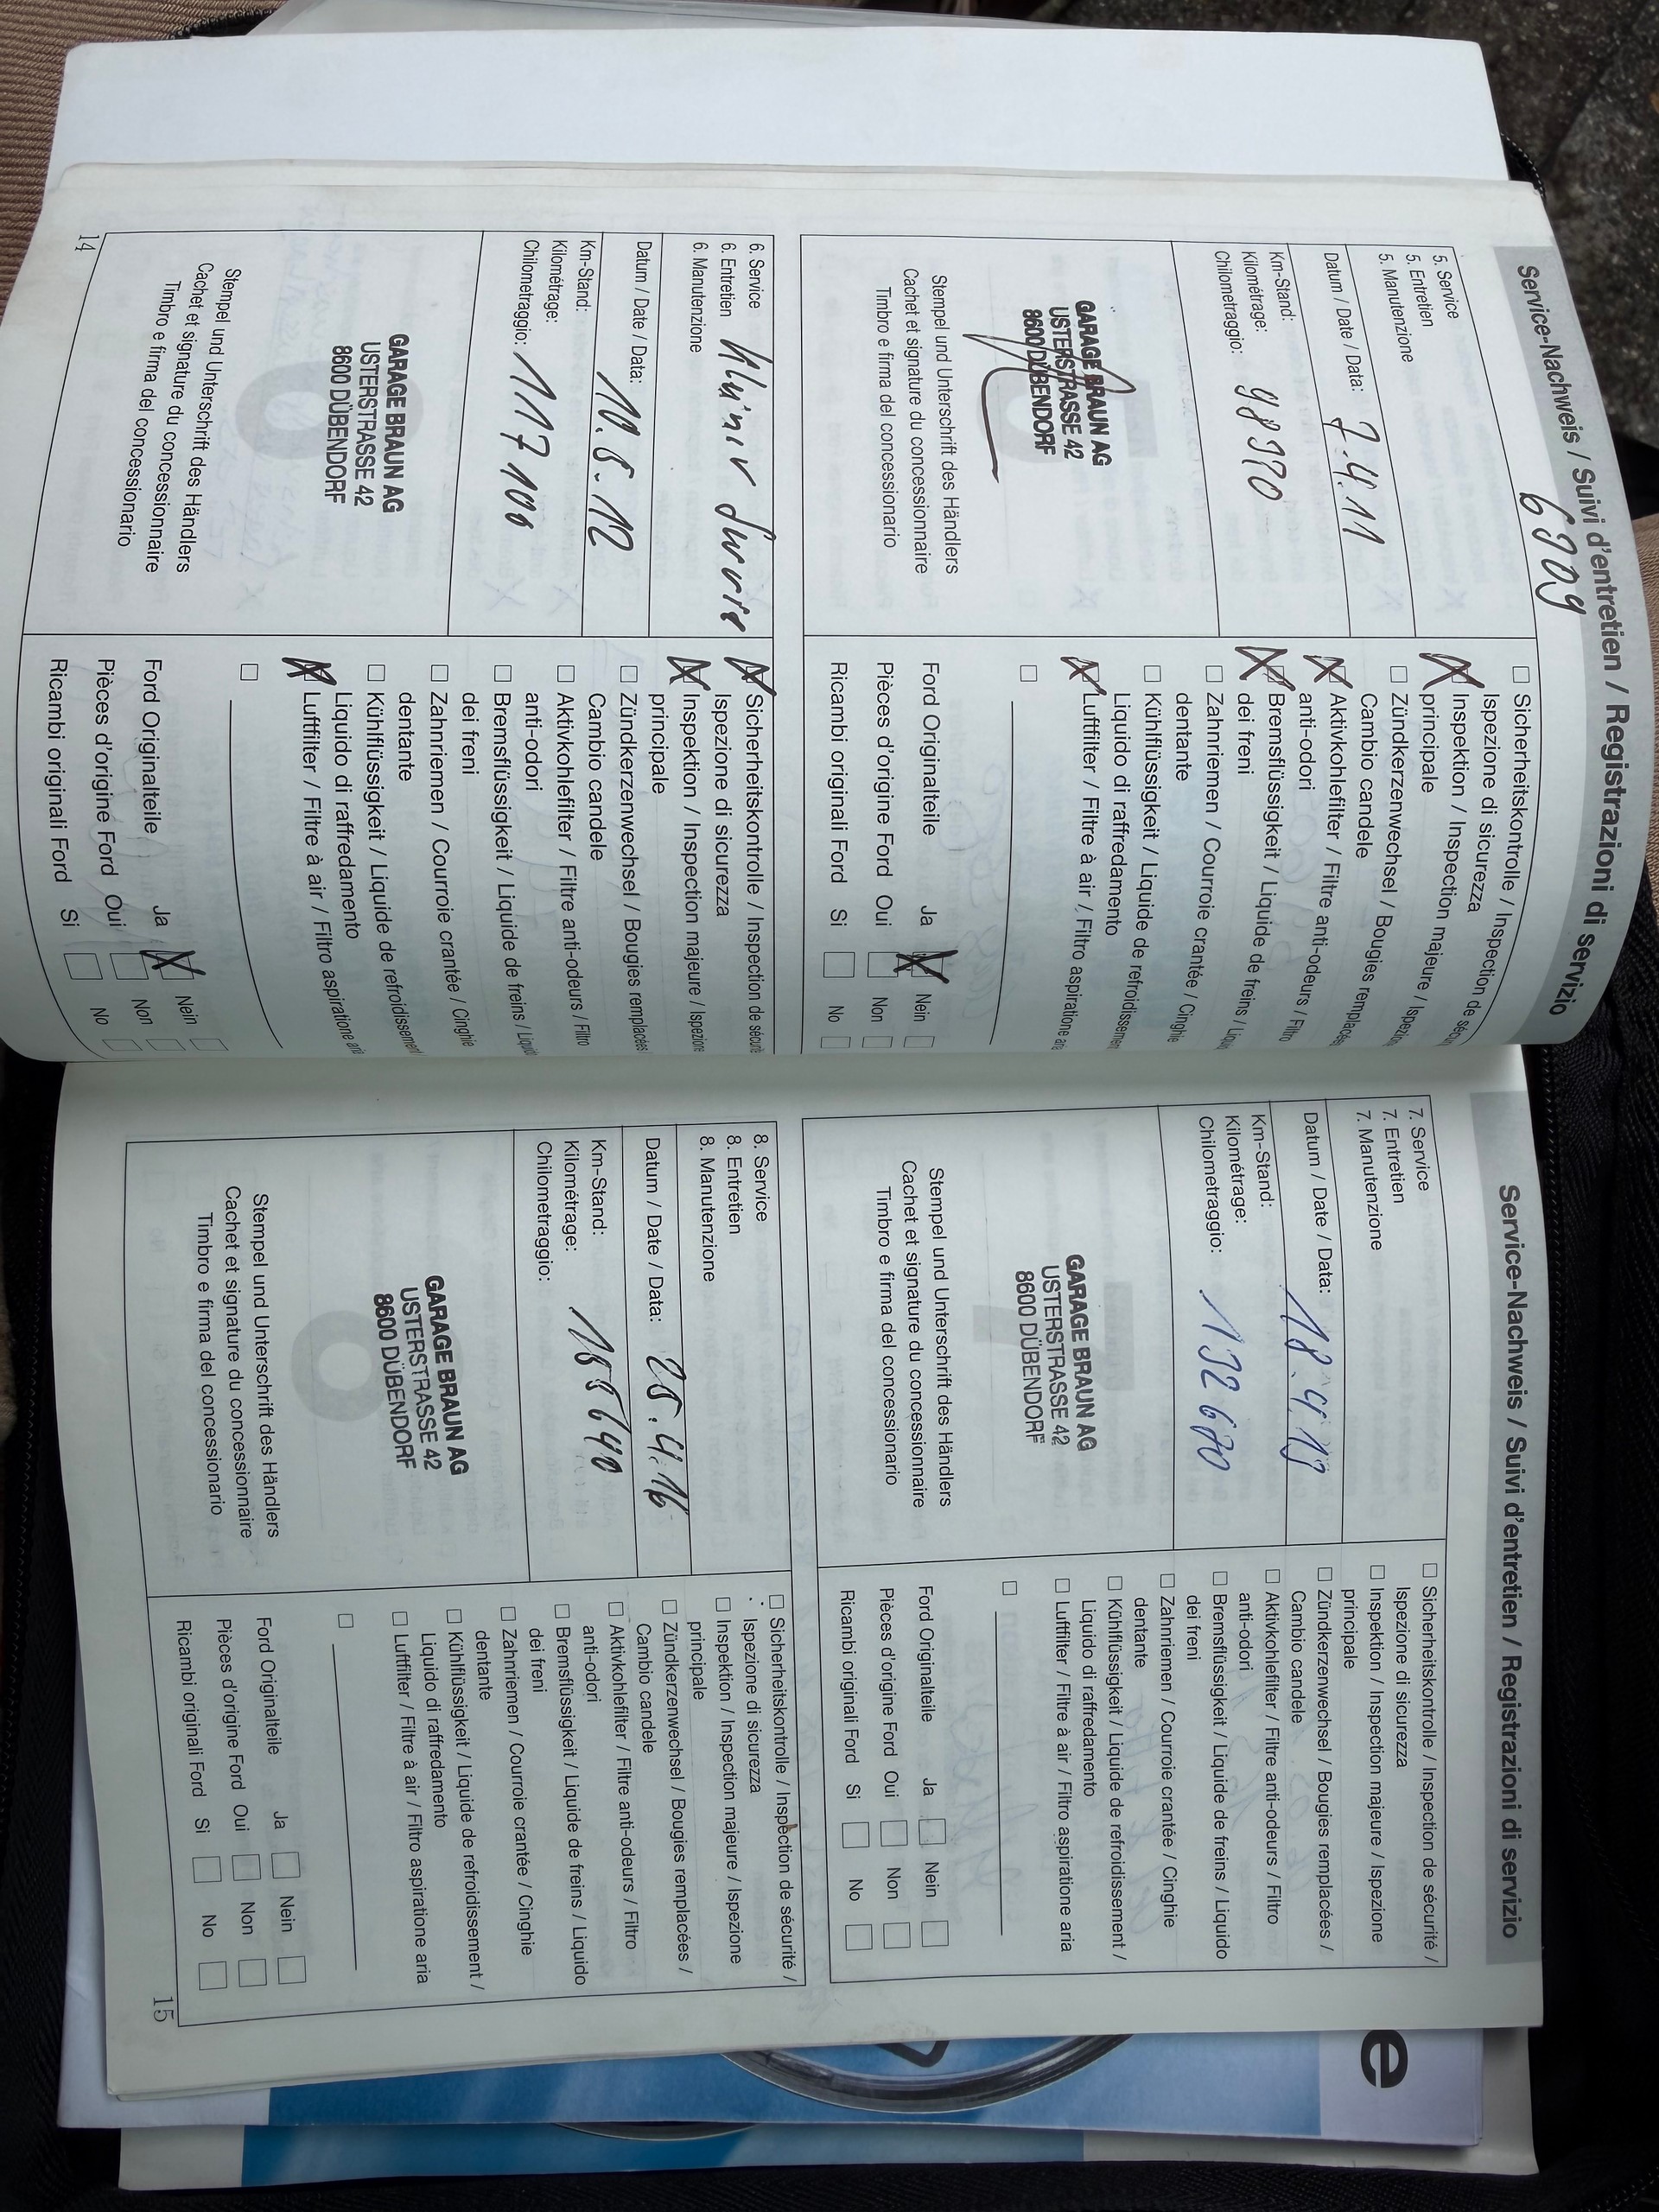 Service-Nachweis / Suivi d'entretien / Registrazioni di servizio
6909
5. Service
5. Entretien
5. Manutenzione
Datum / Date / Data: 7.4.11
Km-Stand:
Kilométrage:
Chilometraggio: 98370
GARAGE BRAUN AG
USTERSTRASSE 42
8600 DÜBENDORF
Stempel und Unterschrift des Händlers
Cachet et signature du concessionnaire
Timbro e firma del concessionario
Sicherheitskontrolle / Inspection de
Ispezione di sicurezza
Inspektion / Inspection majeure /
principale
Zündkerzenwechsel / Bougies remplacées
Cambio candele
Aktivkohlefilter / Filtre anti-odeurs / Filtro
anti-odori
Bremsflüssigkeit / Liquide de freins /
dei freni
Zahnriemen / Courroie crantée / Cinghie
dentante
Kühlflüssigkeit / Liquide de
Liquido di raffredamento
Luftfilter / Filtre à air / Filtro aspiratione
Ford Originalteile Ja Nein
Pièces d'origine Ford Oui Non
Ricambi originali Ford Si No
6. Service
6. Entretien
6. Manutenzione
Datum / Date / Data:
Km-Stand:
Kilométrage:
Chilometraggio: 117100
GARAGE BRAUN AG
USTERSTRASSE 42
8600 DÜBENDORF
Stempel und Unterschrift des Händlers
Cachet et signature du concessionnaire
Timbro e firma del concessionario
Sicherheitskontrolle / Inspection de
Ispezione di sicurezza
Inspektion / Inspection majeure / Ispezione
principale
Zündkerzenwechsel / Bougies remplacées
Cambio candele
Aktivkohlefilter / Filtre anti-odeurs / Filtro
anti-odori
Bremsflüssigkeit / Liquide de freins /
dei freni
Zahnriemen / Courroie crantée / Cinghie
dentante
Kühlflüssigkeit / Liquide de refroidissement
Liquido di raffredamento
Luftfilter / Filtre à air / Filtro aspiratione
Ford Originalteile Ja Nein
Pièces d'origine Ford Oui Non
Ricambi originali Ford Si No
14
Service-Nachweis / Suivi d'entretien / Registrazioni di servizio
7. Service
7. Entretien
7. Manutenzione
Datum / Date / Data: 18.4.13
Km-Stand:
Kilométrage:
Chilometraggio: 132670
GARAGE BRAUN AG
USTERSTRASSE 42
8600 DÜBENDORF
Stempel und Unterschrift des Händlers
Cachet et signature du concessionnaire
Timbro e firma del concessionario
Sicherheitskontrolle / Inspection de sécurité /
Ispezione di sicurezza
Inspektion / Inspection majeure / Ispezione
principale
Zündkerzenwechsel / Bougies remplacées /
Cambio candele
Aktivkohlefilter / Filtre anti-odeurs / Filtro
anti-odori
Bremsflüssigkeit / Liquide de freins / Liquido
dei freni
Zahnriemen / Courroie crantée / Cinghie
dentante
Kühlflüssigkeit / Liquide de refroidissement /
Liquido di raffredamento
Luftfilter / Filtre à air / Filtro aspiratione aria
Ford Originalteile Ja Nein
Pièces d'origine Ford Oui Non
Ricambi originali Ford Si No
8. Service
8. Entretien
8. Manutenzione
Datum / Date / Data: 25.4.16
Km-Stand:
Kilométrage:
Chilometraggio:
GARAGE BRAUN AG
USTERSTRASSE 42
8600 DÜBENDORF
Stempel und Unterschrift des Händlers
Cachet et signature du concessionnaire
Timbro e firma del concessionario
Sicherheitskontrolle / Inspection de sécurité /
Ispezione di sicurezza
Inspektion / Inspection majeure / Ispezione
principale
Zündkerzenwechsel / Bougies remplacées /
Cambio candele
Aktivkohlefilter / Filtre anti-odeurs / Filtro
anti-odori
Bremsflüssigkeit / Liquide de freins / Liquido
dei freni
Zahnriemen / Courroie crantée / Cinghie
dentante
Kühlflüssigkeit / Liquide de refroidissement /
Liquido di raffredamento
Luftfilter / Filtre à air / Filtro aspiratione aria
Ford Originalteile Ja Nein
Pièces d'origine Ford Oui Non
Ricambi originali Ford Si No
15
e